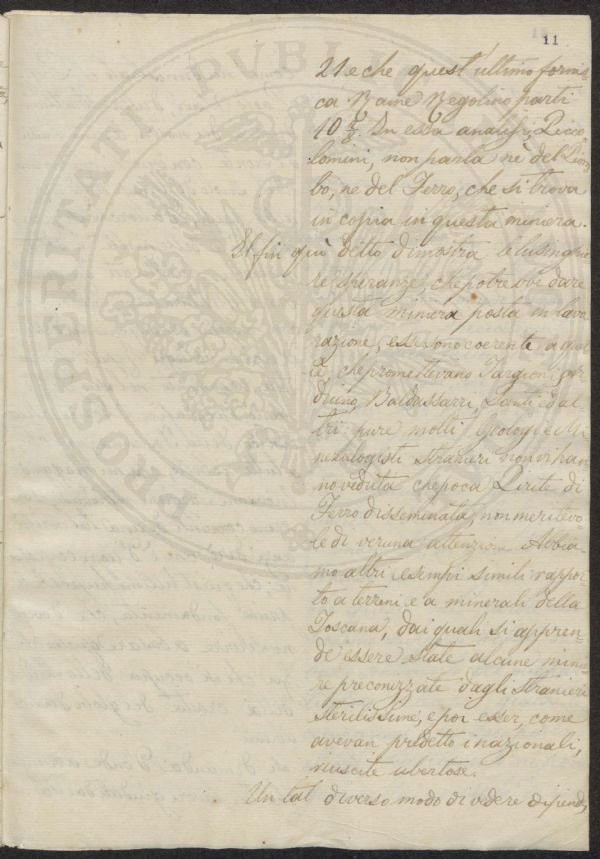 11
21 e che quest'ultimo forni-
ca Rame Regolino parti
10 ⅔. In essa analisi, Picco-
lomini, non parla nè del Piom-
bo, ne del Ferro, che si trova
in copia in questa miniera.
El fin quì detto dimostra le lusinghie
re speranze, che potrebbe dare
questa miniera posta in lavo
razione, esse sono coerenti a quel
le che promettevano Targioni, Ar-
duino, Baldassarri, Santi ed al-
tri: pure molti Geologi e Mi
neralogisti stranieri non vi han
no veduta che poca Pirite di
Ferro disseminata, non meritevo
le di veruna attenzione. Abbia-
mo altri esempi simili rappor
to a terreni e a minerali della
Toscana, dai quali si appren-
de essere state alcune minie
re preconizzate dagli stranieri
sterilissime, e poi esser, come
avevan predetto i nazionali,
riuscite ubertose.
Un tal diverso modo di vedere dipende
PROSPERITATI PVBLI